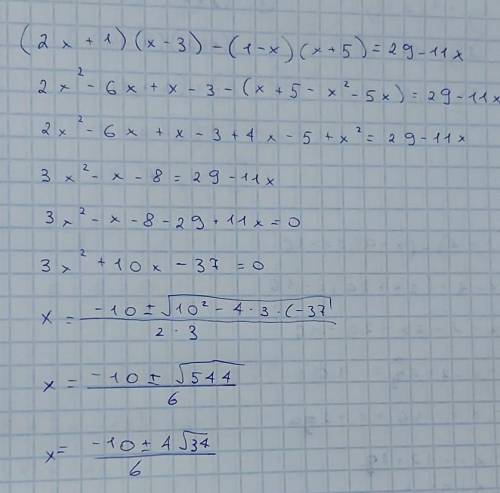 (2x+1)(x-3)-(1-x)(x+5)=29-11x
2x²-6x+x-3-(x+5-x²-5x)=29-11x
2x²-6x+x-3+4x-5+x²=29-11x
3x²-x-8=29-11x
3x²-x-8-29+11x=0
3x²+10x-37=0
x=(-10±√(10²-4·3·(-37))/(2·3)
x=(-10±√544)/6
x=(-10±4√34)/6